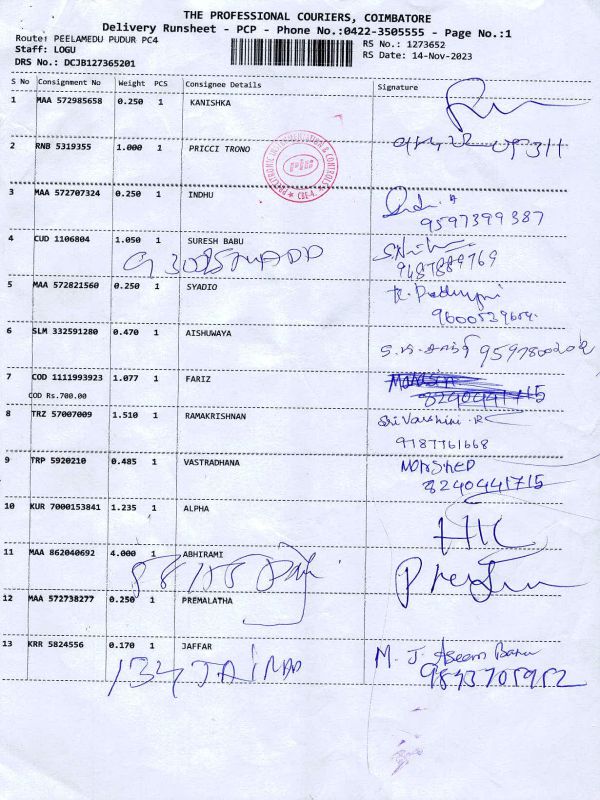 THE PROFESSIONAL COURIERS, COIMBATORE
Delivery Runsheet - PCP - Phone No.:0422-3505555 - Page No.:1
Route: PEELAMEDU PUDUR PC4
RS No.: 1273652
Staff: LOGU
RS Date: 14-Nov-2023
DRS No.: DCJB127365201
S No Consignment No Weight PCS Consignee Details Signature
1 MAA 572985658 0.250 1 KANISHKA
2 RNB 5319355 1.000 1 PRICCI TRONO
3 MAA 572707324 0.250 1 INDHU
9597399387
4 CUD 1106804 1.050 1 SURESH BABU
9487889769
5 MAA 572821560 0.250 1 SYADIO
6 SLM 332591280 0.470 1 AISHUWAYA
7 COD 1111993923 1.077 1 FARIZ
COD Rs.700.00
8240441715
8 TRZ 57007009 1.510 1 RAMAKRISHNAN
Sri Varshini .R
9787761668
9 TRP 5920210 0.485 1 VASTRADHANA
8240441715
10 KUR 7000153841 1.235 1 ALPHA
11 MAA 862040692 4.000 1 ABHIRAMI
12 MAA 572738277 0.250 1 PREMALATHA
13 KRR 5824556 0.170 1 JAFFAR
M. J. Aseem Banu
9843705952